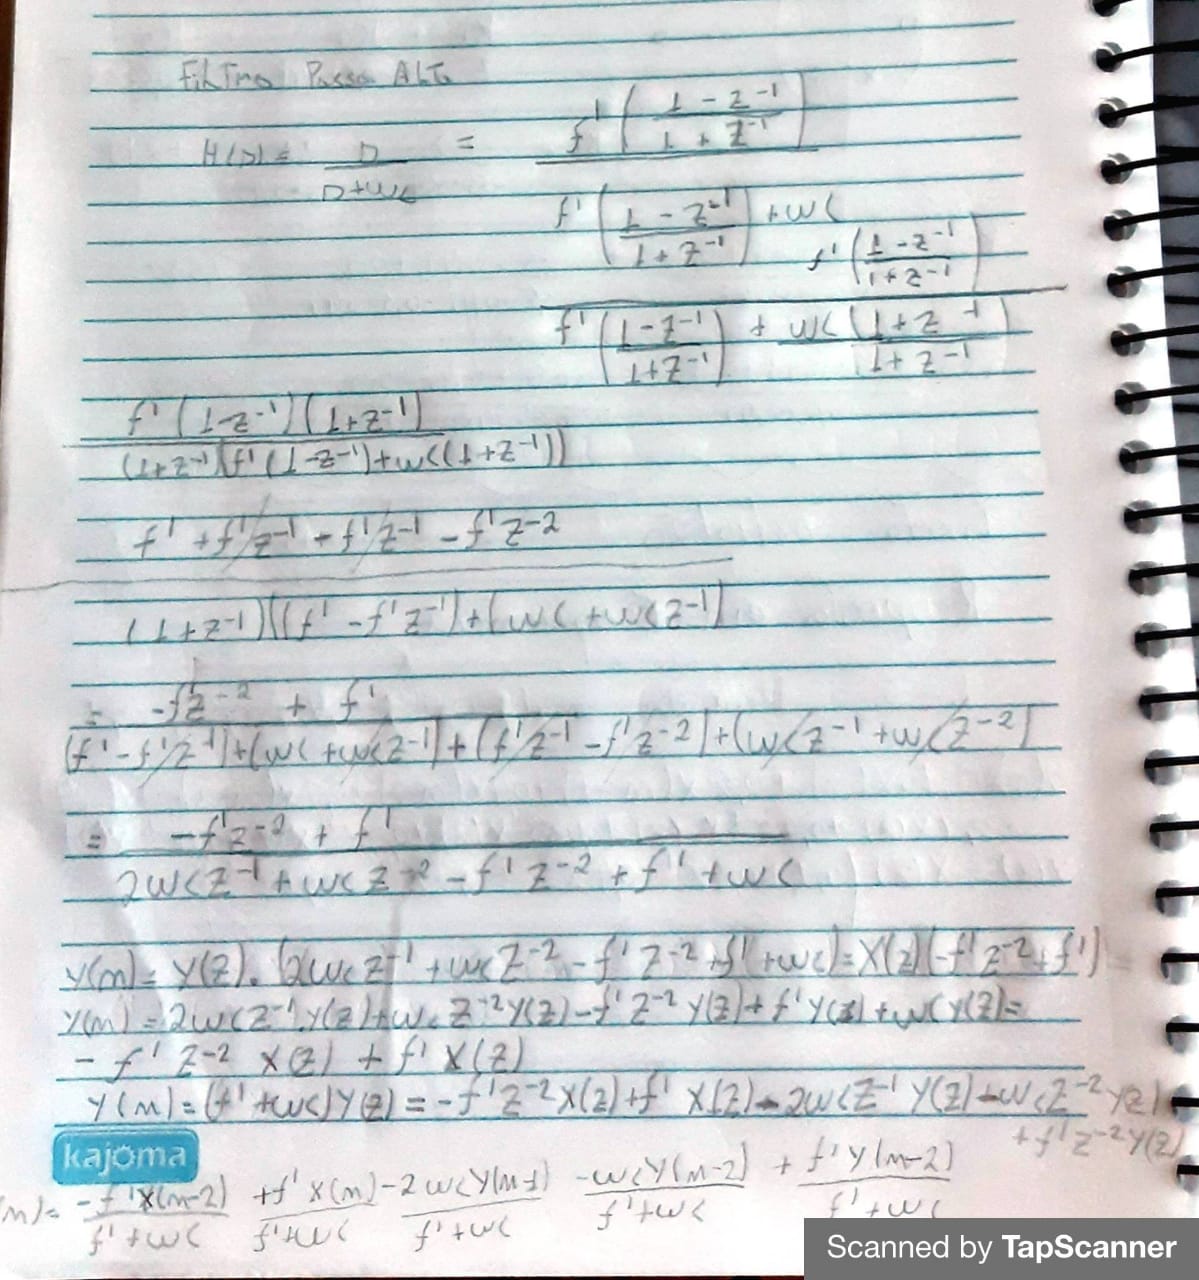 Filtro Passa Alta
H(s) = s / (s+wc) = f' ( (1 - z^-1) / (1 + z^-1) ) / ( f' ( (1 - z^-1) / (1 + z^-1) ) + wc )
f' ( (1 - z^-1) / (1 + z^-1) ) / ( f' ( (1 - z^-1) / (1+z^-1) ) + wc ( (1 + z^-1) / (1 + z^-1) ) )
f' (1-z^-1)(1+z^-1)
(1+z^-1)(f' (1-z^-1)+wc(1+z^-1))
f' + f'z^-1 + f'z^-1 - f'z^-2
(1+z^-1)((f' - f'z^-1)+(wc +wcz^-1)
= -fz^-2 + f'
(f' - f'z^-1)+(wc +wcz^-1)+(f'z^-1 - f'z^-2)+(wcz^-1 +wcz^-2)
= -f'z^-2 + f'
2wcz^-1 + wcz^-2 - f'z^-2 + f' + wc
y(n) = Y(z). (2wcz^-1 + wcz^-2 - f'z^-2 + f' + wc) = X(z)(-f'z^-2 + f')
y(n) = 2wcz^-1.Y(z)+wc z^-2Y(z) - f'z^-2 Y(z) + f'Y(z) + wcY(z) =
- f' z^-2 X(z) + f' X(z)
y(n) = (f' + wc)Y(z) = -f'z^-2X(z) + f' X(z) - 2wcz^-1 Y(z) - wcz^-2 Y(z)
+ f'z^-2Y(z)
kajoma
n) = -f'X(n-2) / (f' + wc) + f'X(n) / (f'+wc) - 2wcY(n-1) / (f' + wc) - wcY(n-2) / (f'+wc) + f'Y(n-2) / (f'+wc)
Scanned by TapScanner